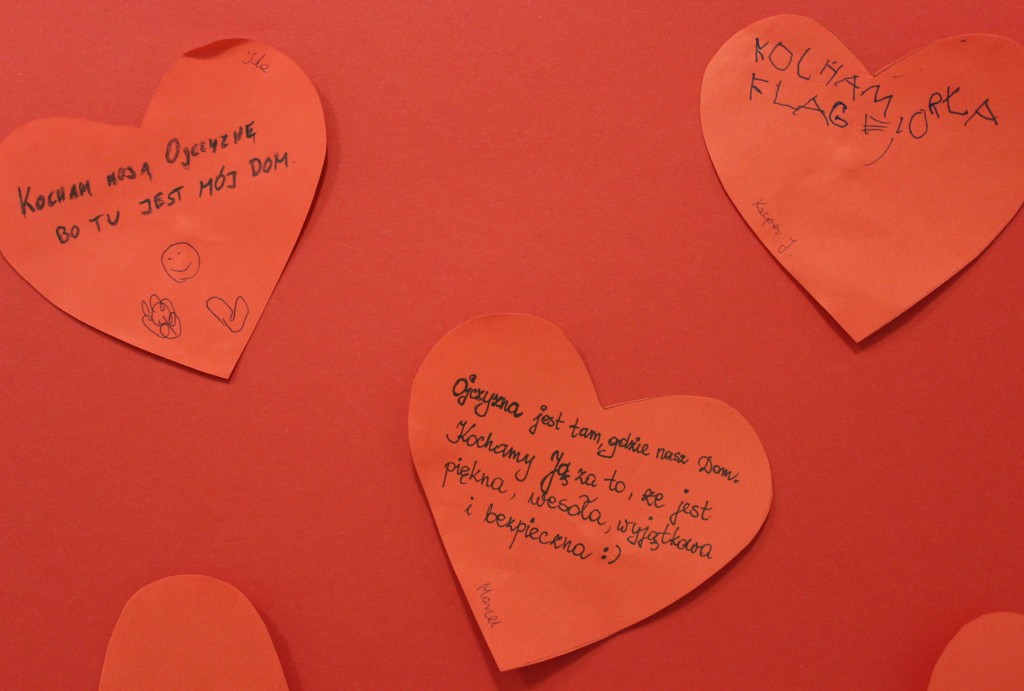 KOCHAM MOJĄ OJCZYZNĘ
BO TU JEST MÓJ DOM.
KOCHAM
FLAGĘ I ORŁA
Kacper J.
Ojczyzna jest tam, gdzie nasz Dom.
Kochamy Ją za to, że jest
piękna, wesoła, wyjątkowa
i bezpieczna :)
Marcel